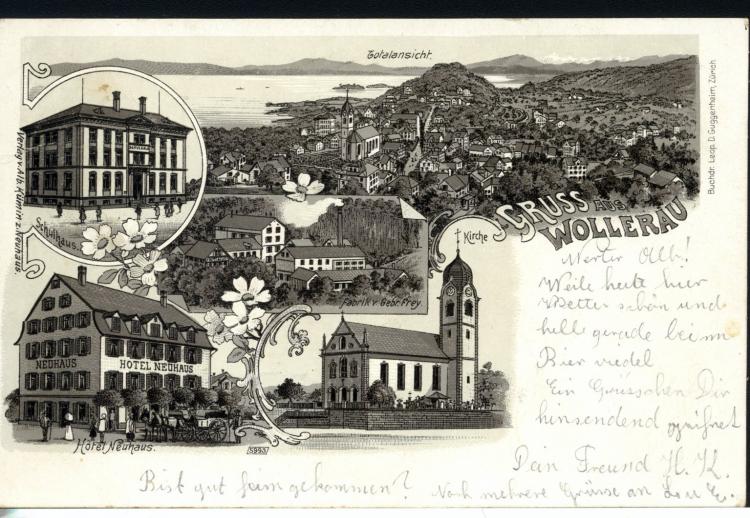 Totalansicht.
Buchdr. Leop. D. Guggenheim, Zürich.
Verlag v. Alb. Kümin z. Neuhaus.
Schulhaus.
GRUSS AUS
WOLLERAU
Kirche
Fabrik v. Gebr. Frey.
NEUHAUS
HOTEL NEUHAUS
Hôtel Neuhaus.
5993
Werter Alb!
Weile heute hier
Wetter schön und
hell gerade beim
Bier
Ein Grüsschen Dir
hinsendend
Dein Freund H. K.
Bist gut heim gekommen?
Noch mehrere Grüsse an